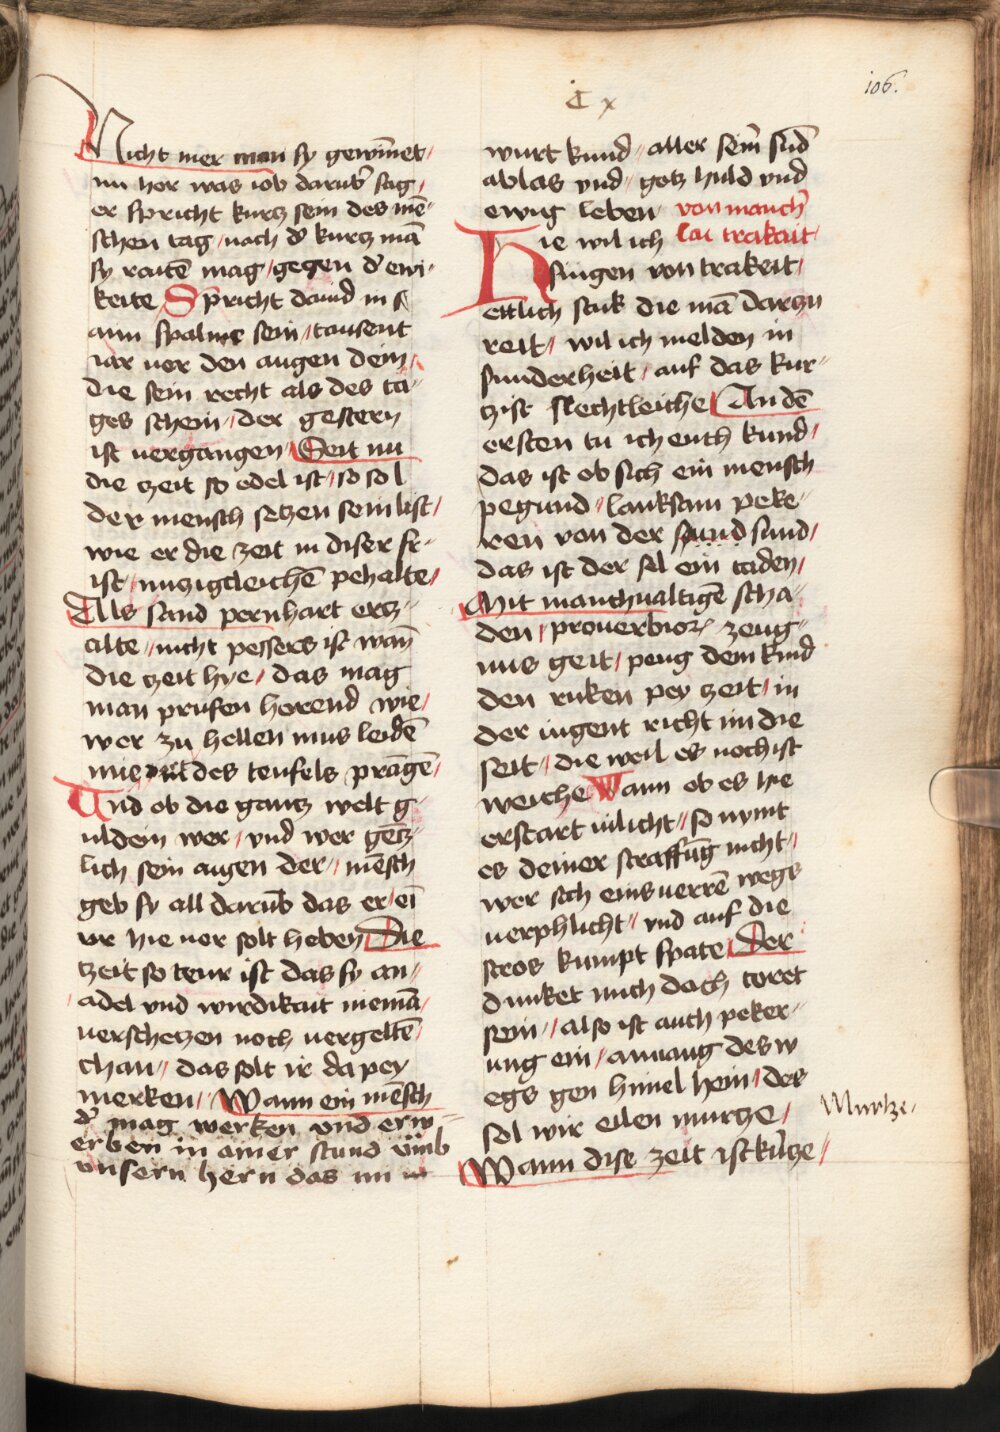 C x
106.
Nicht mer man sy gewiñet /
nu hor was iob darub̃ sag /
er spricht kurcz sein des mē-
schen tag / nach d' kurcz mā
sy raitē mag / gegen d' ewi-
keite Spricht dauid in
aim spalms sein / tausent
iar vor den augen dein /
die sein recht als des ta-
ges schein / der gestern
ist vergangen Seit nu
die zeit so edel ist / so sol
der mensch seczen sein list /
wie er die zeit in diser fr-
ist / nuczigcleichē pehalte /
Als sand pernhart ercz-
alte / nicht pessers ist wañ
die zeit hye / das mag
man prufen horend wie /
wer zu hellen mus leidē
mie des teufels pragē /
Und ob die gantz welt g-
uldein wer / vnd wer gētz-
lich sein augen der / mēsch
geb sy all darūb das er / eī
vr hie vor solt heben Die
zeit so teur ist das sy an /
adel vnd wirdikait niemā /
verscheczen noch vergeltē /
chan / das solt ir da pey
merken / Wann ein mēsch
d' mag werken vnd erw-
erben in ainer stund vmb
vnsern hern das im
wurt kund / aller seiñ sūd
ablas vnd / gotz huld vnd
ewig leben / von manch'
lai trakait /
Hie wil ich
singen von trakeit /
ettlich stuk die mā darczu
reit / wil ich melden in
sunderheit / auf das kur-
czist slechtleiche An dē
ersten tu ich euch kund /
das ist ob sich ein mensch
pegund / lanksam peke-
ren von der sund sund /
das ist der sel ein taden /
Mit manchualtigē scha-
den / prouerbior zeug-
nus geit / peug dem kind
den ruken pey zeit / in
der iugent richt im die
seit / die weil es noch ist
weiche Wann ob es hie
erstart vilicht / so nymt
es deiner straffūg nicht /
wer sich eins verrē wegs
verphlicht / vnd auf die
stros kumpt spate Der
dunket mich doch toret
sein / also ist auch peker-
ung ein / anuang des w
egs gen himel hein / des
sol wir eilen murcze /
Wann dise zeit ist kurcze /
Murtze /